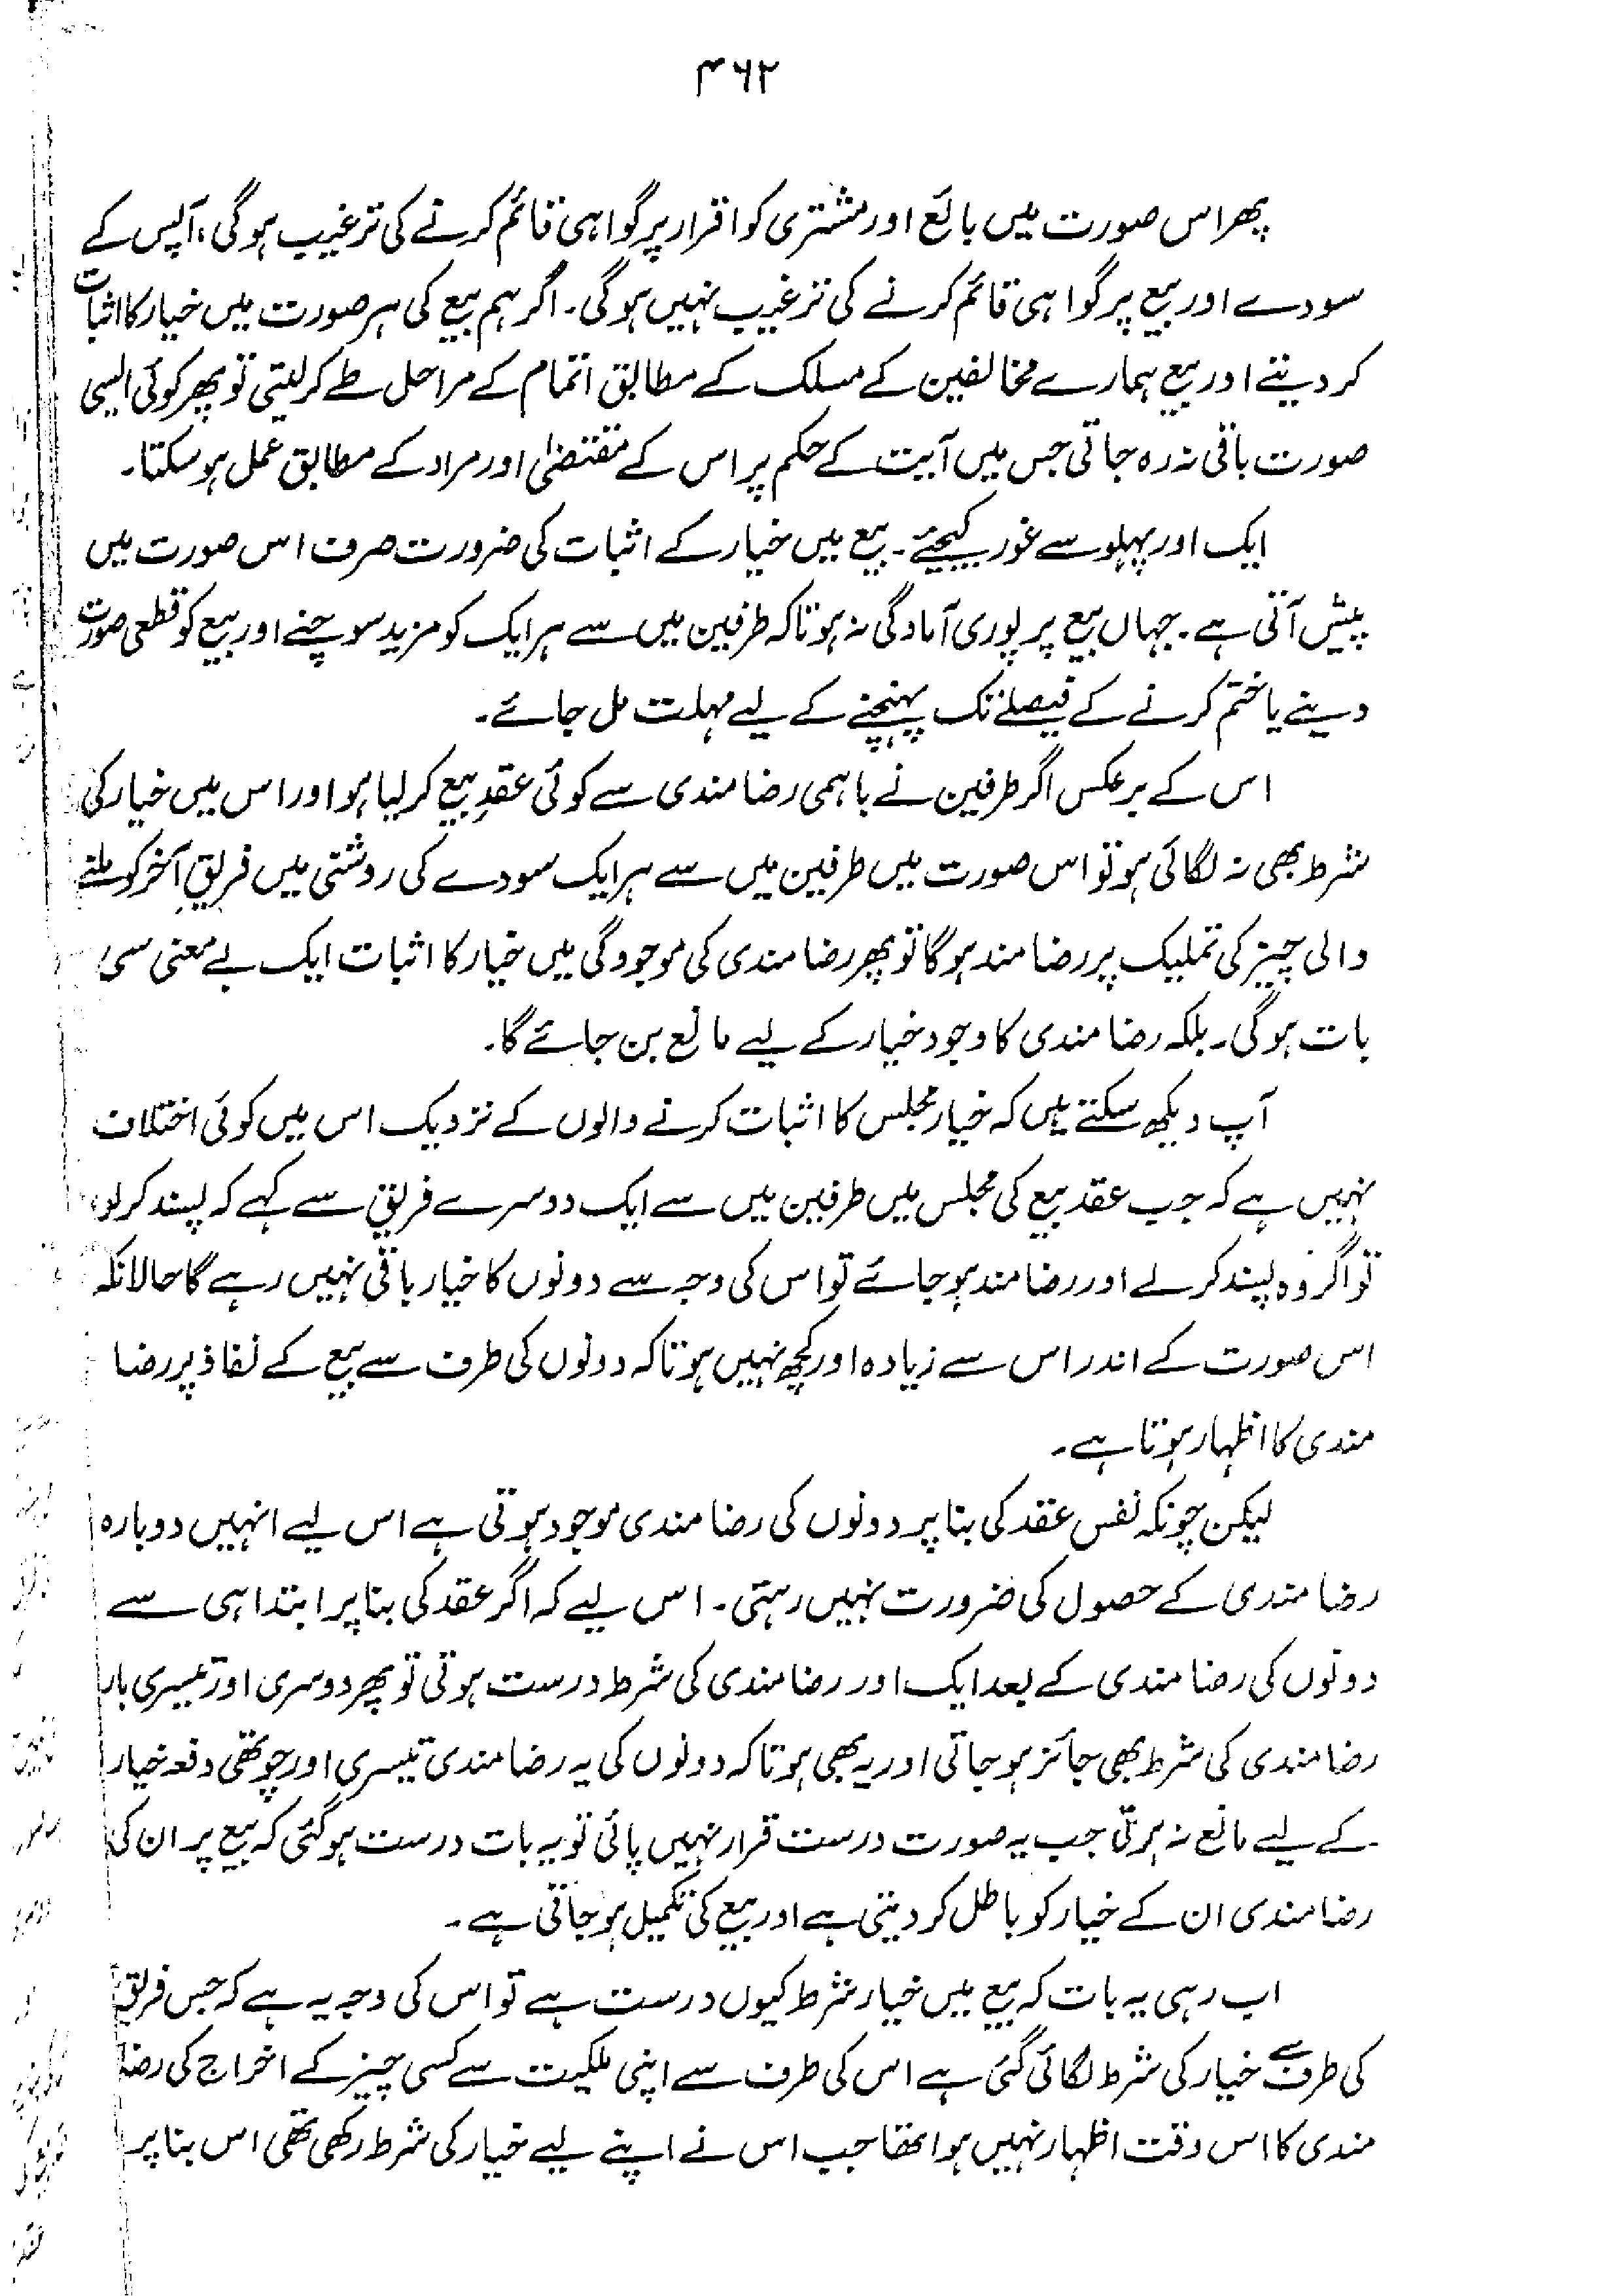 ۴۶۲
پھر اس صورت میں بائع اور مشتری کو اقرار پر گواہی قائم کرنے کی ترغیب ہوگی، آپس کے
سودے اور بیع پر گواہی قائم کرنے کی ترغیب نہیں ہوگی۔ اگر ہم بیع کی ہر صورت میں خیار کا اثبات
کر دیتے اور بیع ہمارے مخالفین کے مسلک کے مطابق اتمام کے مراحل طے کر لیتی تو پھر کوئی ایسی
صورت باقی نہ رہ جاتی جس میں آیت کے حکم پر اس کے مقتضیٰ اور مراد کے مطابق عمل ہو سکتا۔
ایک اور پہلو سے غور کیجئے۔ بیع میں خیار کے اثبات کی ضرورت صرف اس صورت میں
پیش آتی ہے۔ جہاں بیع پر پوری آمادگی نہ ہو تاکہ طرفین میں سے ہر ایک کو مزید سوچنے اور بیع کو قطعی صورت
دینے یا ختم کرنے کے فیصلے تک پہنچنے کے لیے مہلت مل جائے۔
اس کے برعکس اگر طرفین نے باہمی رضامندی سے کوئی عقدِ بیع کر لیا ہو اور اس میں خیار کی
شرط بھی نہ لگائی ہو تو اس صورت میں طرفین میں سے ہر ایک سودے کی روشنی میں فریقِ آخر کو ملنے
والی چیز کی تملیک پر رضامند ہوگا تو پھر رضامندی کی موجودگی میں خیار کا اثبات ایک بے معنی سی
بات ہوگی۔ بلکہ رضامندی کا وجود خیار کے لیے مانع بن جائے گا۔
آپ دیکھ سکتے ہیں کہ خیار مجلس کا اثبات کرنے والوں کے نزدیک اس میں کوئی اختلاف
نہیں ہے کہ جب عقد بیع کی مجلس میں طرفین میں سے ایک دوسرے فریق سے کہے کہ پسند کر لو،
تو اگر وہ پسند کر لے اور رضامند ہو جائے تو اس کی وجہ سے دونوں کا خیار باقی نہیں رہے گا حالانکہ
اس صورت کے اندر اس سے زیادہ اور کچھ نہیں ہوتا کہ دونوں کی طرف سے بیع کے نفاذ پر رضا
مندی کا اظہار ہوتا ہے۔
لیکن چونکہ نفس عقد کی بنا پر دونوں کی رضامندی موجود ہوتی ہے اس لیے انہیں دوبارہ
رضا مندی کے حصول کی ضرورت نہیں رہتی۔ اس لیے کہ اگر عقد کی بنا پر ابتدا ہی سے
دونوں کی رضا مندی کے بعد ایک اور رضامندی کی شرط درست ہوتی تو پھر دوسری اور تیسری بار
رضامندی کی شرط بھی جائز ہو جاتی اور یہ بھی ہوتا کہ دونوں کی یہ رضامندی تیسری اور چوتھی دفعہ خیار
کے لیے مانع نہ ہوتی جب یہ صورت درست قرار نہیں پائی تو یہ بات درست ہوگئی کہ بیع پر ان کی
رضامندی ان کے خیار کو باطل کر دیتی ہے اور بیع کی تکمیل ہو جاتی ہے۔
اب رہی یہ بات کہ بیع میں خیار شرط کیوں درست ہے تو اس کی وجہ یہ ہے کہ جس فریق
کی طرف سے خیار کی شرط لگائی گئی ہے اس کی طرف سے اپنی ملکیت سے کسی چیز کے اخراج کی رضا
مندی کا اس وقت اظہار نہیں ہوا تھا جب اس نے اپنے لیے خیار کی شرط رکھی تھی اس بنا پر